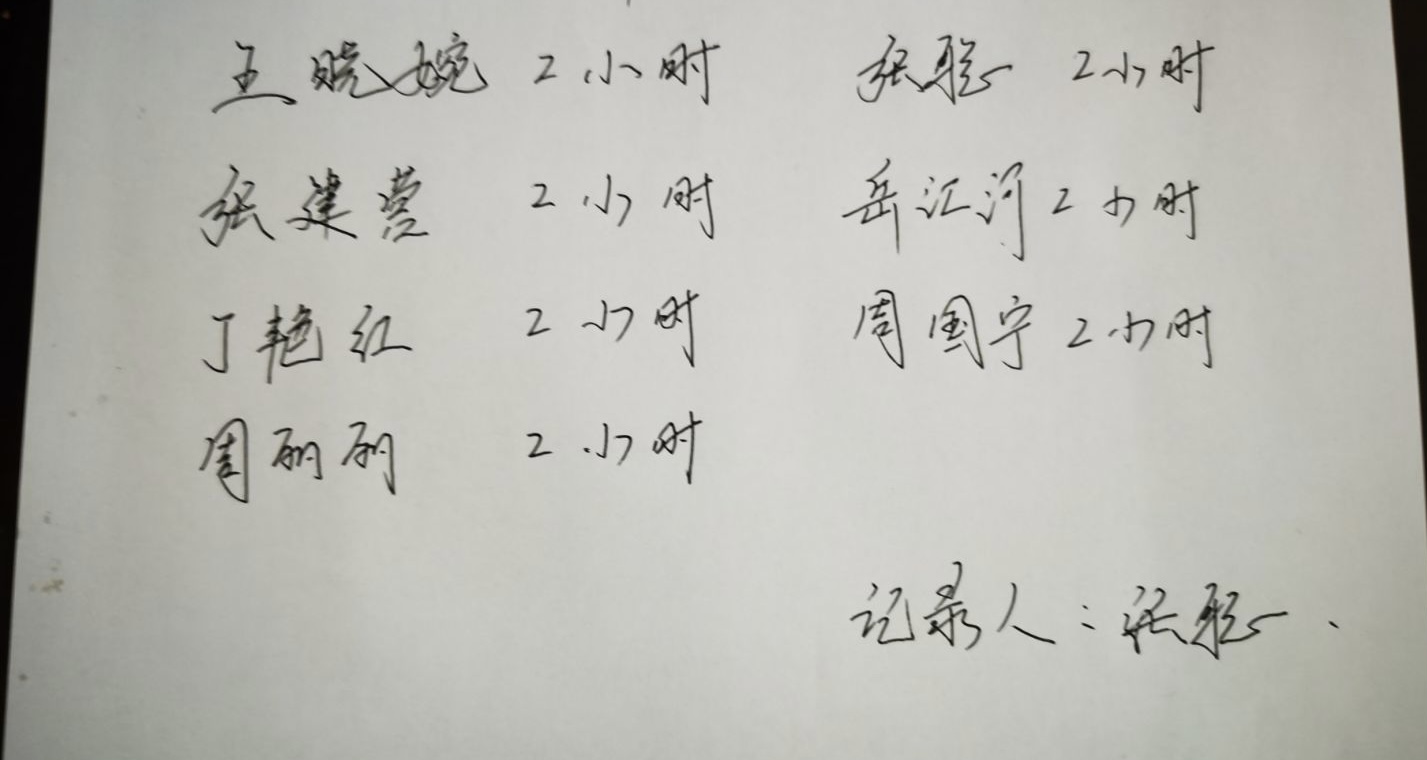 王晓婉 2小时 张聪 2小时
张建营 2小时 岳江河 2小时
丁艳红 2小时 周国宁 2小时
周丽丽 2小时
记录人:张聪.